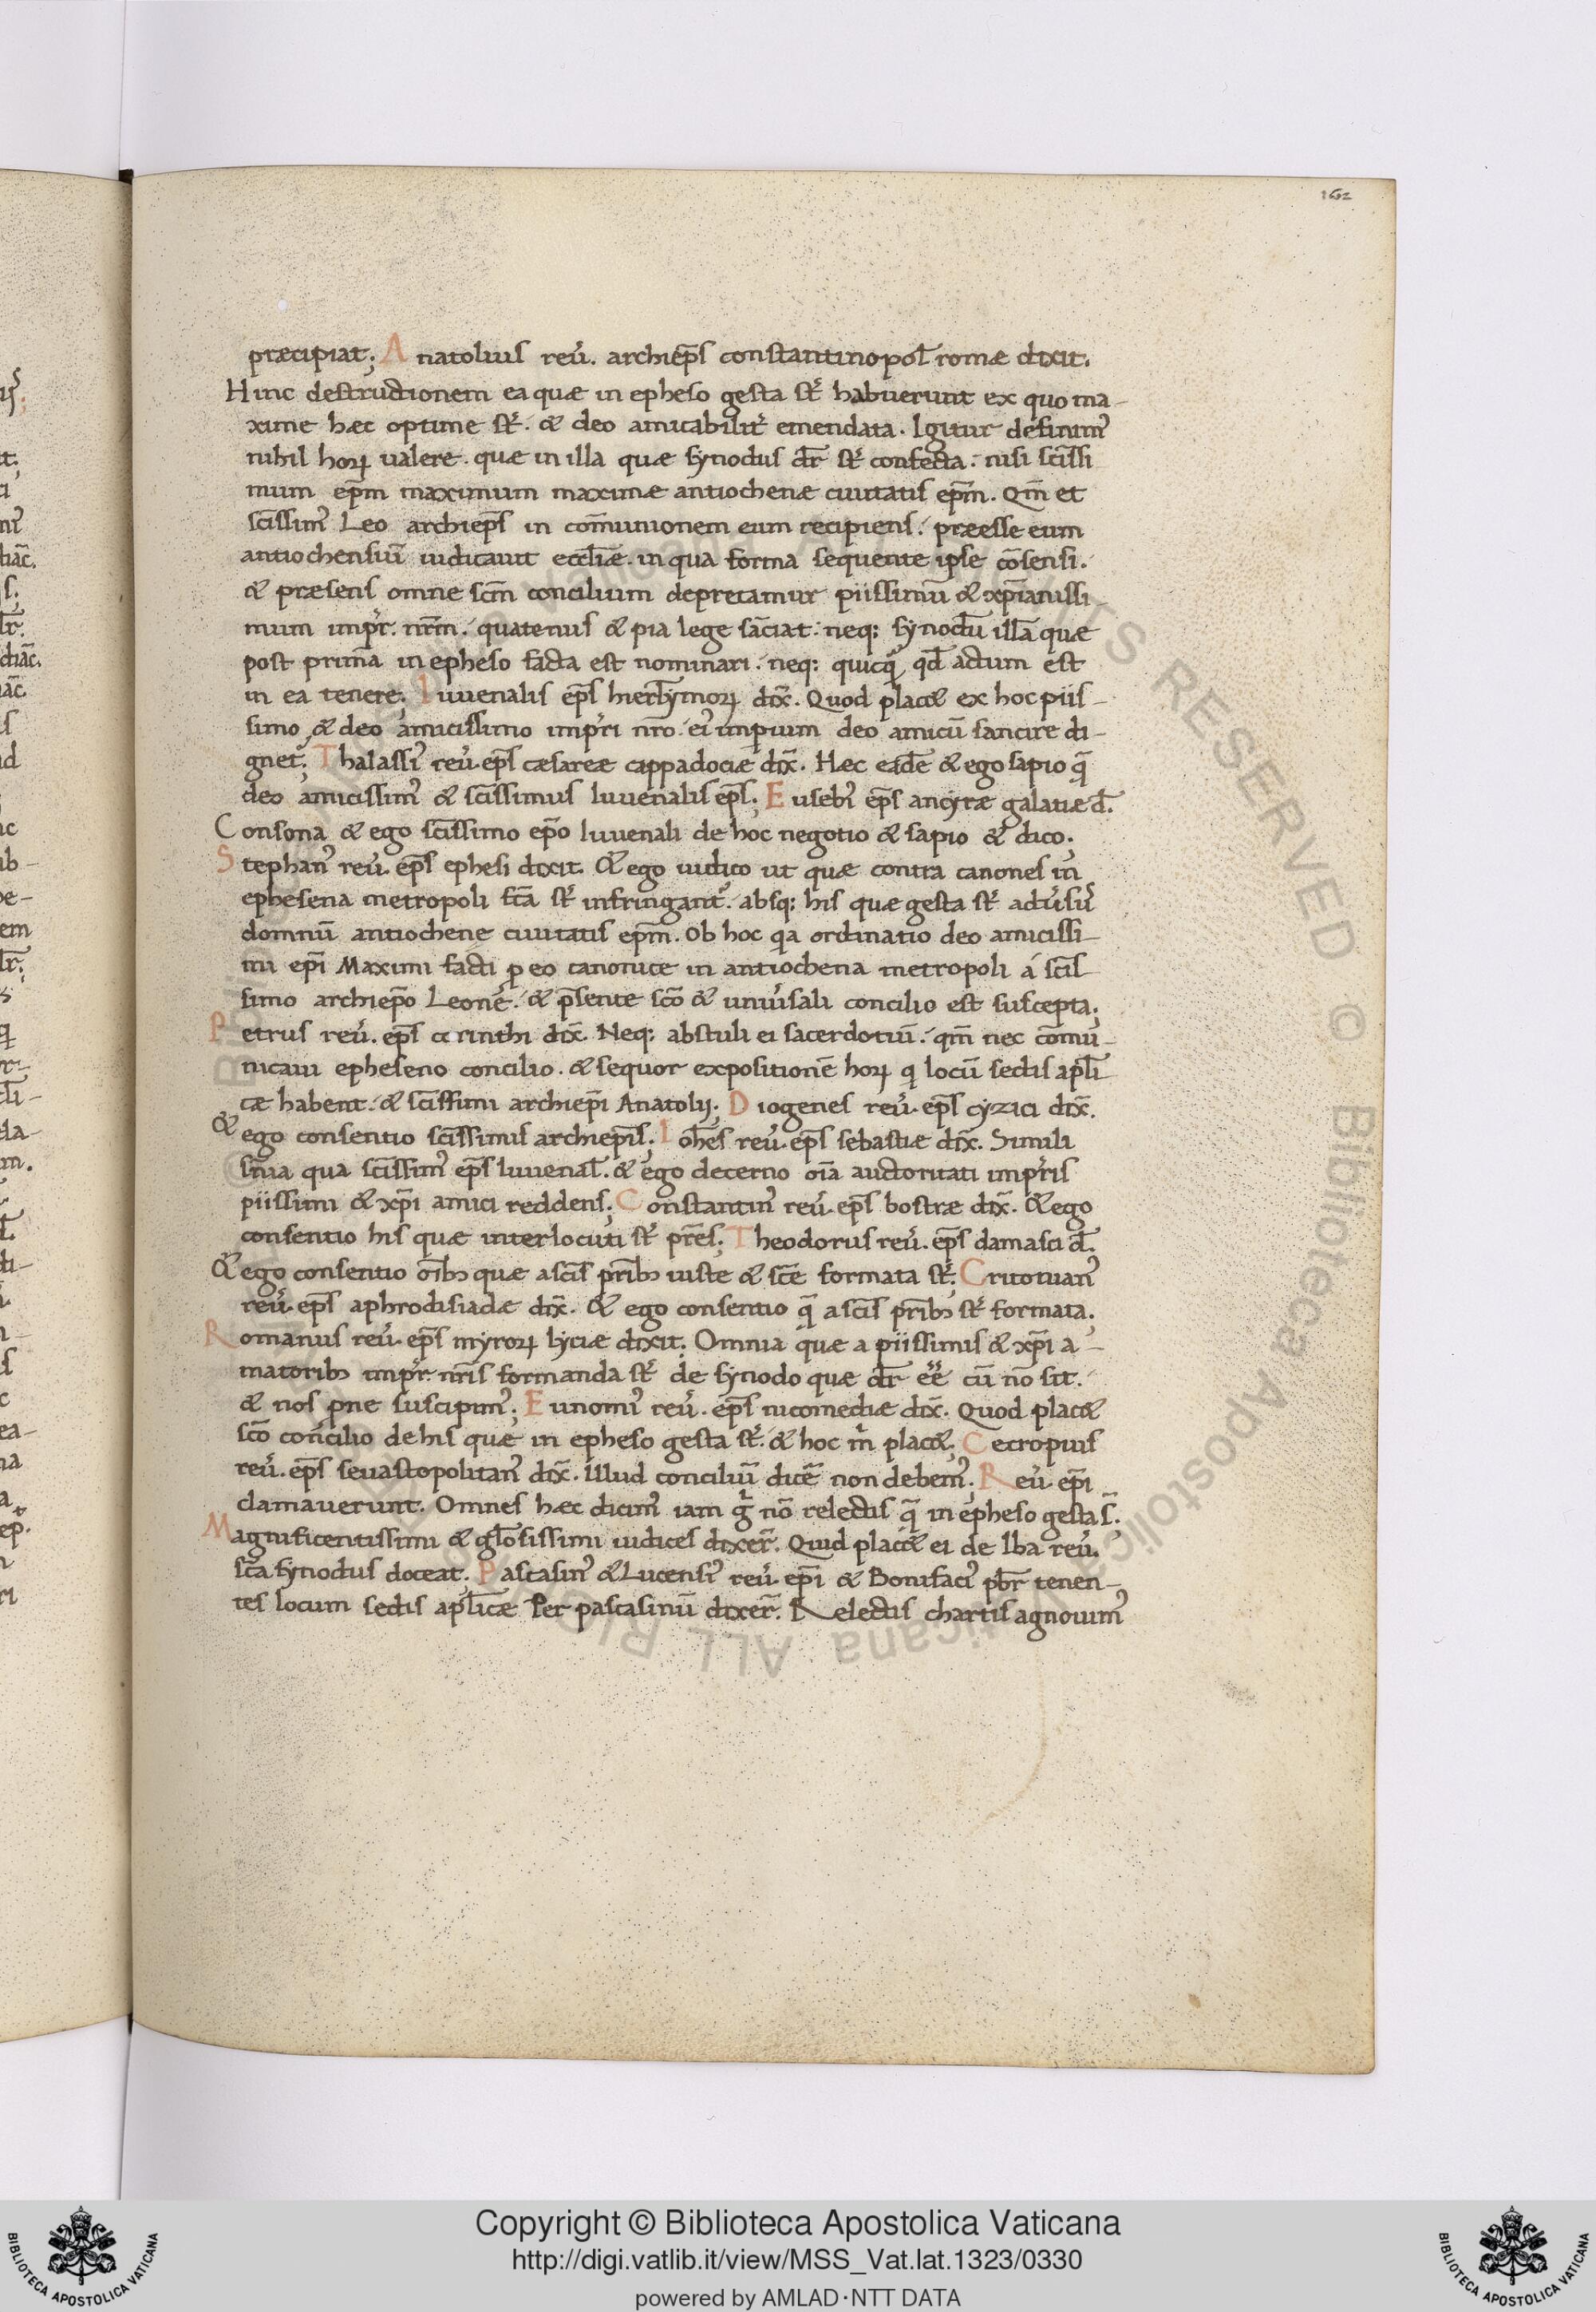 162
præcipiat; Anatolius reu̓. archiep̅s constantinopol̅ romæ dixit.
Hinc destructionem ea quæ in epheso gesta st̓ habuerunt ex quo ma-
xime hæc optime st̓. & deo amicabilit̓ emendata. Igitur definim᾽
nihil hoꝝ ualere. quæ in illa quæ synodus dr̅ st̓ confecta. nisi sc̅issi
mum ep̅m maximum maximæ antiochenæ ciuitatis ep̅m. Qm̅ et
sc̅issim᾽ Leo archiep̅s in com̅unionem eum recipiens. præesse eum
antiochensiu̅ iudicauit eccl̅iæ. in qua forma sequente ipse co̅sensi.
& præsens omne sc̅m concilium deprecamur piissimu̅ & xp̅ianissi-
mum imp̓r. nr̅m. quatenus & pia lege sa̅ciat. neq: synodu̅ illa̅ quæ
post prima̅ in epheso facta est nominari. neq: quicq̓ qd̅ actum est
in ea tenere; Iuuenalis ep̅s hierl̅ymoꝝ dix̅. Quod plac& ex hoc piis-
simo & deo amicissimo imp̓ri nr̅o. ei᾽ imperium deo amicu̅ sancire di-
gnet᷑; Thalassi᾽ reu̓. ep̅s cæsareæ cappadociæ dix̅. Hæc eade̅ & ego sapio q̅
deo amicissim᾽ & sc̅issimus Iuuenalis ep̅s; Eusebi᾽ ep̅s ancyræ galatiæ d̅.
Consona & ego sc̅issimo ep̅o Iuuenali de hoc negotio & sapio & dico;
Stephan᾽ reu̓. ep̅s ephesi dixit. & ego iudico ut quæ contra canones in
ephesena metropoli fc̅a st̓ infringant᷑. absq: his quæ gesta st̓ adu̓su᾽
domnu̅ antiochene ciuitatis ep̅m. Ob hoc q̓a ordinatio deo amicissi-
mi ep̅i Maximi facti ꝑ eo canonice in antiochena metropoli á sc̅is
simo archiep̅o Leone. & p̅sente sc̅o & uniu̓sali concilio est suscepta;
Petrus reu̓. ep̅s corinthi dix̅. Neq: abstuli ei sacerdotiu̅. qm̅ nec com̅u-
nicaui epheseno concilio. & sequor expositione̅ hoꝝ q̓ locu̅ sedis apl̅i
cæ habent. & sc̅issimi archiep̅i Anatolij; Diogenes reu̓. ep̅s cyzici dix̅.
& ego consentio sc̅issimis archiep̅is; Ioh̅es reu̓. ep̅s sebastiæ dix̅. Simili
sn̅ia qua sc̅issim᾽ ep̅s Iuuenal̅. & ego decerno oi̅a auctoritati imp̓ris
piissimi & xp̅i amici reddens; Constantin᾽ reu̓. ep̅s bostræ dix̅. & ego
consentio his quæ interlocuti st̓ pr̅es; Theodorus reu̓. ep̅s damasci d̅.
& ego consentio om̅ibꝫ quæ a sc̅is pr̅ibꝫ iuste & sc̅e formata st̓; Critonian᾽
reu̓. ep̅s aphrodisiadæ dix̅. & ego consentio q̅ a sc̅is pr̅ibꝫ st̓ formata;
Romanus reu̓. ep̅s myroꝝ lyciæ dixit; Omnia quæ a piissimis & xp̅i a-
matoribꝫ imp̓r. nr̅is formanda st̓ de synodo quæ dr̅ ee̅ cu̅ no̅ sit.
& nos pn̅e suscipim᾽; Eunomi᾽ reu̓. ep̅s nicomediæ dix̅. Quod plac&
sc̅o concilio de his quæ in epheso gesta st̓. & hoc m̓ plac&; Cecropius
reu̓. ep̅s seuastopolitan᾽ dix̅. Illud conciliu̅ dice̅ non debem᾽; Reu̓. ep̅i
clamauerunt. Omnes hæc dicim᾽ iam g̓ no̅ relectis q̅ in epheso gesta s̅.
Magnificentissimi & gl̅osissimi iudices dixer̅. Quid plac& ei de Iba reu̓.
sc̅a synodus doceat. Pascasin᾽ & Lucensi᾽ reu̓. ep̅i & Bonifaci᾽ pb̅r tenen-
tes locum sedis apl̅icæ Per pascasinu̅ dixer̅. Relectis chartis agnouim᾽
Copyright © Biblioteca Apostolica Vaticana
http://digi.vatlib.it/view/MSS_Vat.lat.1323/0330
powered by AMLAD·NTT DATA